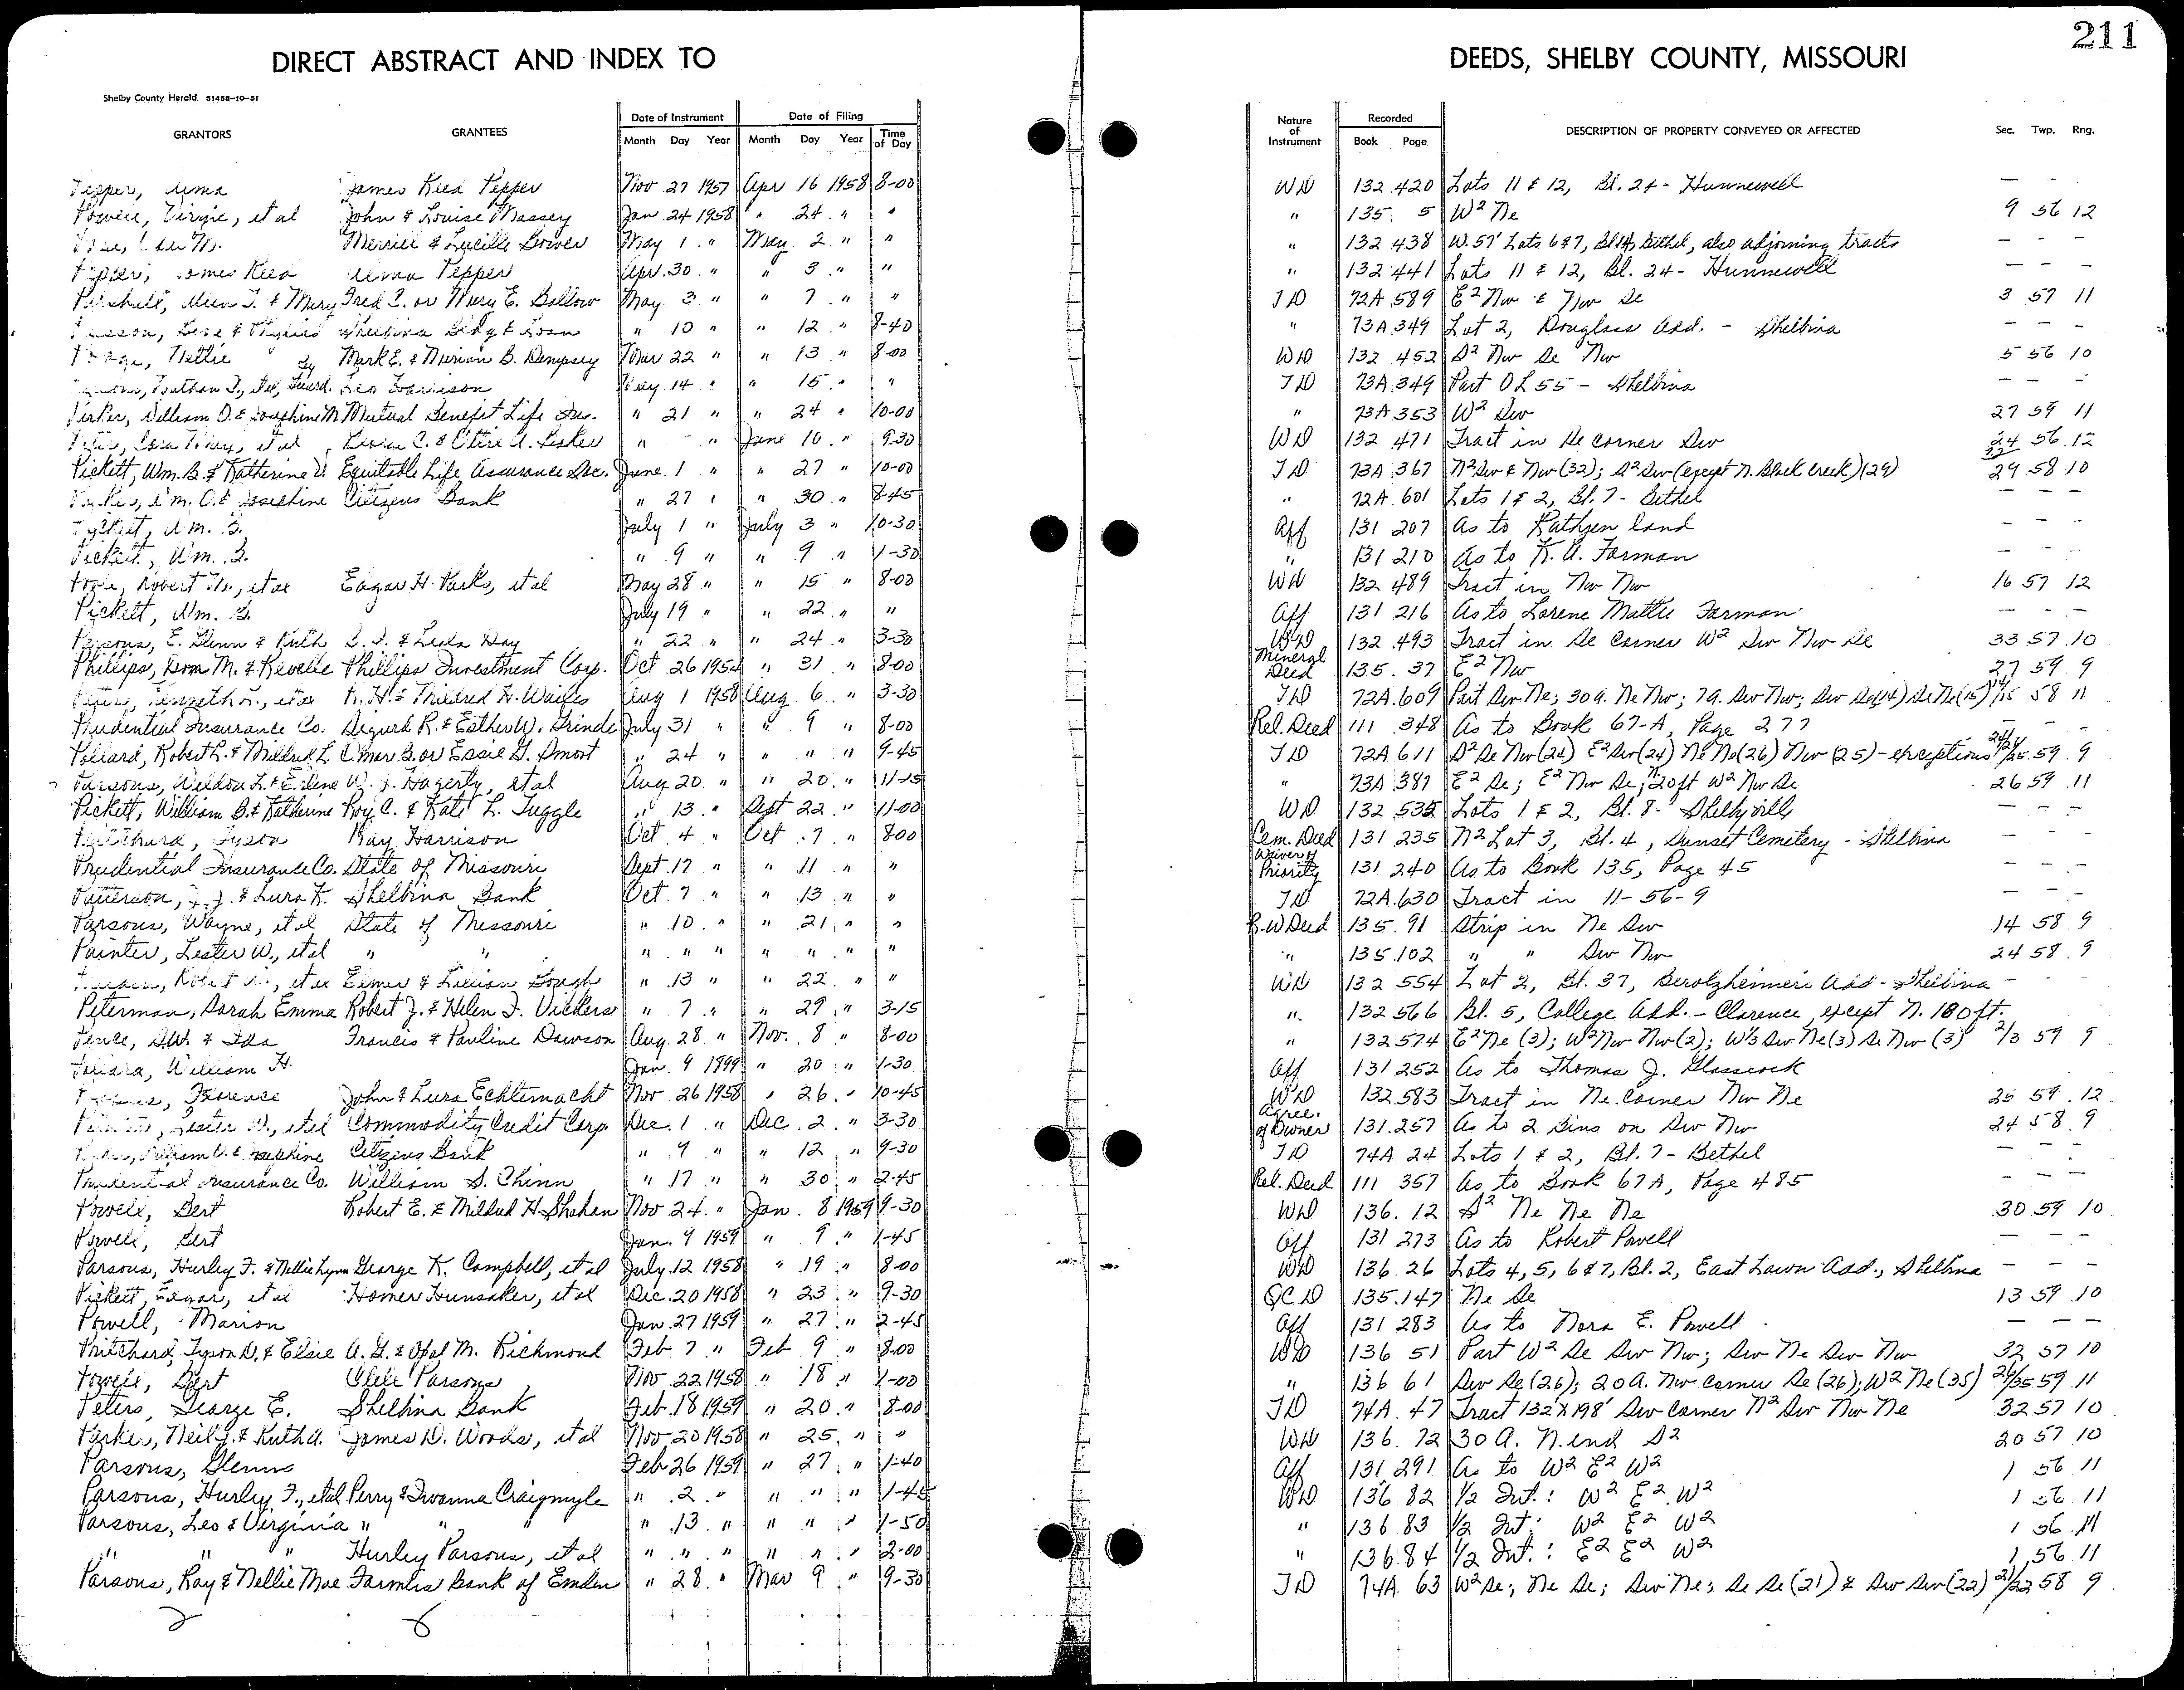 211
DIRECT ABSTRACT AND INDEX TO DEEDS, SHELBY COUNTY, MISSOURI
Shelby County Herald 51458-10-51
GRANTORS GRANTEES Date of Instrument Month Day Year Date of Filing Month Day Year Time of Day Nature of Instrument Recorded Book Page DESCRIPTION OF PROPERTY CONVEYED OR AFFECTED Sec. Twp. Rng.
Pepper, James Reed Pepper Nov 27 1957 Apr 16 1958 8-00 WD 132 420 Lots 11 & 12, Bl. 24 - Hunnewell —
Powell, Virgie, et al John & Louise Massey Jan 24 1958 " 24 " " " 135 5 W² Ne 9 56 12
Merrill & Lucille Bower May 1 " May 2 " " " 132 438 W. 57' Lots 6 & 7, Bethel, also adjoining tracts — — —
Pepper, James Reed Pepper Apr 30 " " 3 " " " 132 441 Lots 11 & 12, Bl. 24 - Hunnewell — — —
& Mary Fred C. or Mary E. Ballow May 3 " " 7 " " TD 72A 589 E² Nw & Nw Se 3 57 11
Shelbina Bldg & Loan " 10 " " 12 " 8-40 " 73A 349 Lot 2, Douglass Add. - Shelbina — — —
Nettie By Mark E. & Marian B. Dempsey Mar 22 " " 13 " 8-00 WD 132 452 S² Nw Se Nw 5 56 10
Leo Harrison May 14 " " 15 " " TD 73A 349 Part OL 55 - Shelbina — — —
Parker, William O. & Josephine M. Mutual Benefit Life Ins. " 21 " " 24 " 10-00 " 73A 353 W² Sw 27 59 11
" - " June 10 " 9-30 WD 132 471 Tract in Se corner Sw 24 56 12
Pickett, Wm. B. & Katherine V. Equitable Life Assurance Soc. June 1 " " 27 " 10-00 TD 73A 367 N² Sw & Nw (32); S² Sw (except N. Black Creek) (29) 32 29 58 10
Parker, Wm. O. & Josephine Citizens Bank " 27 " " 30 " 8-45 " 72A 601 Lots 1 & 2, Bl. 7 - Bethel — — —
Pickett, Wm. B. July 1 " July 3 " 10-30 Aff 131 207 As to Rathgen land — — —
Pickett, Wm. B. " 9 " " 9 " 1-30 " 131 210 As to K. A. Forman — — —
Robert M., et al Edgar H. Parks, et al May 28 " " 15 " 8-00 WD 132 489 Tract in Nw Nw 16 57 12
Pickett, Wm. B. July 19 " " 22 " " Aff 131 216 As to Lorene Mattie Forman — — —
Parsons, E. Glenn & Ruth & Lula Day " 22 " " 24 " 3-30 WD 132 493 Tract in Se Corner W² Sw Nw Se 33 57 10
Phillips, Dom M. & Revelle Phillips Investment Corp. Oct 26 1954 " 31 " 8-00 Mineral Deed 135 37 E² Nw 27 59 9
et ux & Mildred H. Wailes Aug 1 1958 Aug 6 " 3-30 TD 72A 609 Part Sw Ne; 30 a. Ne Nw; 7 a. Sw Nw; Sw Se (14) Se Ne (15) 14/15 58 11
Prudential Insurance Co. Sigurd R. & Esther W. Grinde July 31 " " 9 " 8-00 Rel. Deed 111 348 As to Book 67-A, Page 277 — — —
Pollard, Robert L. & Mildred L. Omer B. or Essie G. Smoot " 24 " " " " 9-45 TD 72A 611 S² Se Nw (24) E² Sw (24) Ne Ne (26) Nw (25) - exceptions 59 9
Parsons, Weldon L. & Erlene W. J. Hagerty, et al Aug 20 " " 20 " 11-15 " 73A 381 E² Se; E² Nw Se; N. 20 ft W² Nw Se 26 59 11
Pickett, William B. & Katherine Roy C. & Kate L. Tuggle " 13 " Sept 22 " 11-00 WD 132 535 Lots 1 & 2, Bl. 8 - Shelbyville — — —
Pritchard, Tyson Ray Harrison Oct 4 " Oct 7 " 8-00 Cem. Deed 131 235 N² Lot 3, Bl. 4, Sunset Cemetery - Shelbina — — —
Prudential Insurance Co. State of Missouri Sept 17 " " 11 " " Waiver of Priority 131 240 As to Book 135, Page 45 — — —
Patterson, J. J. & Lura K. Shelbina Bank Oct 7 " " 13 " " TD 72A 630 Tract in 11-56-9 — — —
Parsons, Wayne, et al State of Missouri " 10 " " 21 " " R-W Deed 135 91 Strip in Ne Sw 14 58 9
Painter, Lester W., et al " " " " " " " " " " 135 102 " " Sw Nw 24 58 9
Robert et ux Elmer & Lillian Gough " 13 " " 22 " " WD 132 554 Lot 2, Bl. 37, Berolzheimer's Add - Shelbina — —
Peterman, Sarah Emma Robert J. & Helen F. Vickers " 7 " " 29 " 3-15 " 132 566 Bl. 5, College Add. - Clarence, except N. 180 ft.
Pence, D.W. & Ida Francis & Pauline Dawson Aug 28 " Nov. 8 " 8-00 " 132 574 E² Ne (3); W² Nw Nw (2); W⅓ Sw Ne (3) Se Nw (3) 2/3 59 9
William H. Jan. 9 1899 " 20 " 1-30 Aff 131 252 As to Thomas J. Glasscock
Florence John & Lura Echternacht Nov 26 1958 " 26 " 10-45 WD 132 583 Tract in Ne. Corner Nw Ne 25 59 12
Painter, Lester W., et al Commodity Credit Corp. Dec. 1 " Dec 2 " 3-30 Agree. of Owner 131 257 As to 2 Bins on Sw Nw 24 58 9
Parker, William O. & Josephine Citizens Bank " 9 " " 12 " 9-30 TD 74A 24 Lots 1 & 2, Bl. 7 - Bethel — — —
Prudential Insurance Co. William S. Chinn " 17 " " 30 " 2-45 Rel. Deed 111 357 As to Book 67A, Page 485 — — —
Powell, Bert Robert E. & Mildred H. Shahan Nov 24 " Jan. 8 1959 9-30 WD 136 12 S² Ne Ne Ne 30 59 10
Powell, Bert Jan. 9 1959 " 9 " 1-45 Aff 131 273 As to Robert Powell — — —
Parsons, Hurley F. & Nellie Lynn George K. Campbell, et al July 12 1958 " 19 " 8-00 WD 136 26 Lots 4, 5, 6 & 7, Bl. 2, East Lawn Add., Shelbina — — —
Pickett, Edgar, et al Homer Hunsaker, et al Dec. 20 1958 " 23 " 9-30 QCD 135 147 Ne Se 13 59 10
Powell, Marion Jan. 27 1959 " 27 " 2-45 Aff 131 283 As to Nora E. Powell — — —
Pritchard, Tyson D. & Elsie A. G. & Opal M. Richmond Feb 7 " Feb 9 " 8-00 WD 136 51 Part W² Se Sw Nw; Sw Ne Sw Nw 32 57 10
Powell, Bert Clell Parsons Nov 22 1958 " 18 " 1-00 " 136 61 Sw Se (26); 20 A. Nw corner Se (26); W² Ne (35) 26/35 59 11
Peters, George E. Shelbina Bank Feb. 18 1959 " 20 " 8-00 TD 74A 47 Tract 132' X 198' Sw Corner N² Sw Nw Ne 32 57 10
Parker, Neil J. & Ruth A. James D. Woods, et al Nov 20 1958 " 25 " " WD 136 72 30 A. N. end S² 20 57 10
Parsons, Glenn Feb 26 1959 " 27 " 1-40 Aff 131 291 As to W² E² W² 1 56 11
Parsons, Hurley F., et al Perry & Twanna Craigmyle " 2 " " " " 1-45 WD 136 82 ½ Int.: W² E² W² 1 56 11
Parsons, Leo & Virginia " " " " 13 " " " " 1-50 " 136 83 ½ Int: W² E² W² 1 56 11
" " " Hurley Parsons, et al " " " " " " 2-00 " 136 84 ½ Int.: E² E² W² 1 56 11
Parsons, Ray & Nellie Mae Farmers Bank of Emden " 28 " Mar 9 " 9-30 TD 74A 63 W² Se; Ne Se; Sw Ne; Se Se (21) & Sw Sw (22) 21/22 58 9